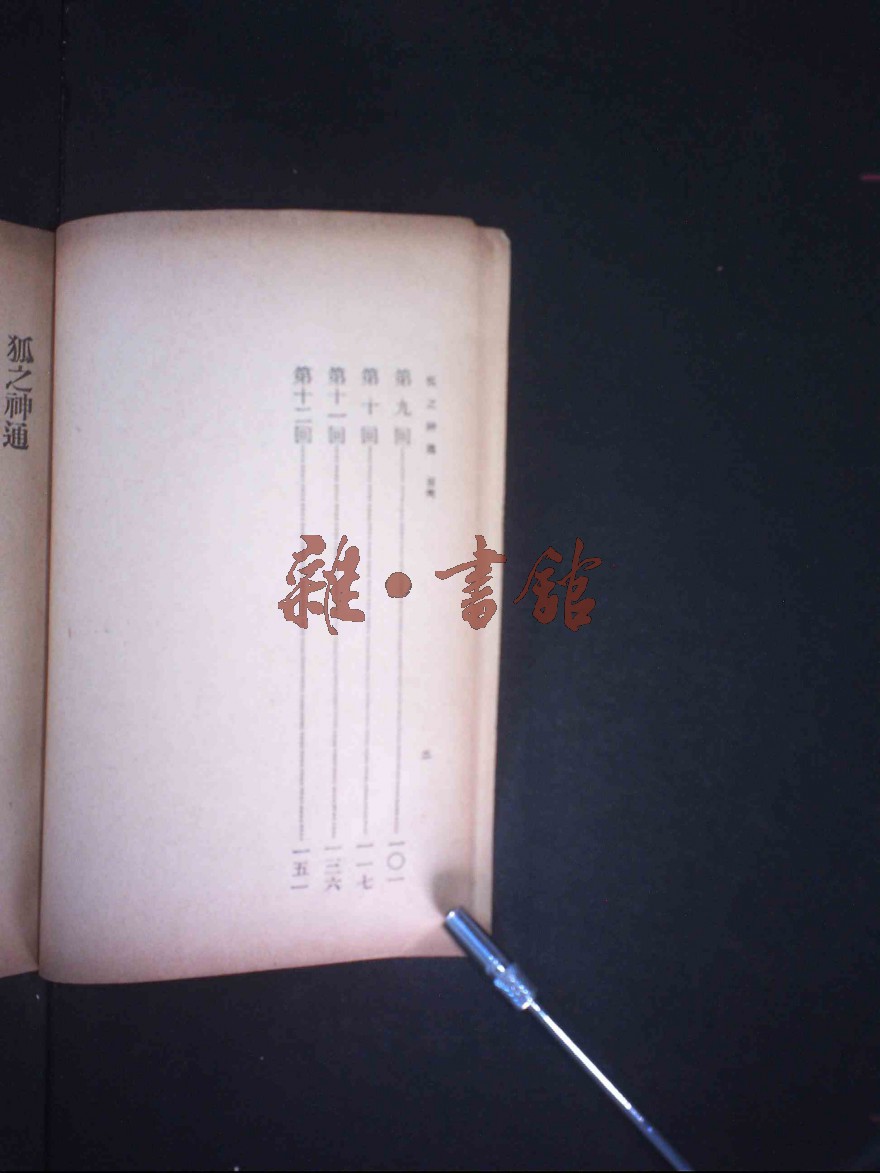 狐之神通 目次
第九回 一〇一
第十回 一一七
第十一回 一三六
第十二回 一五一
狐之神通
雜·書館